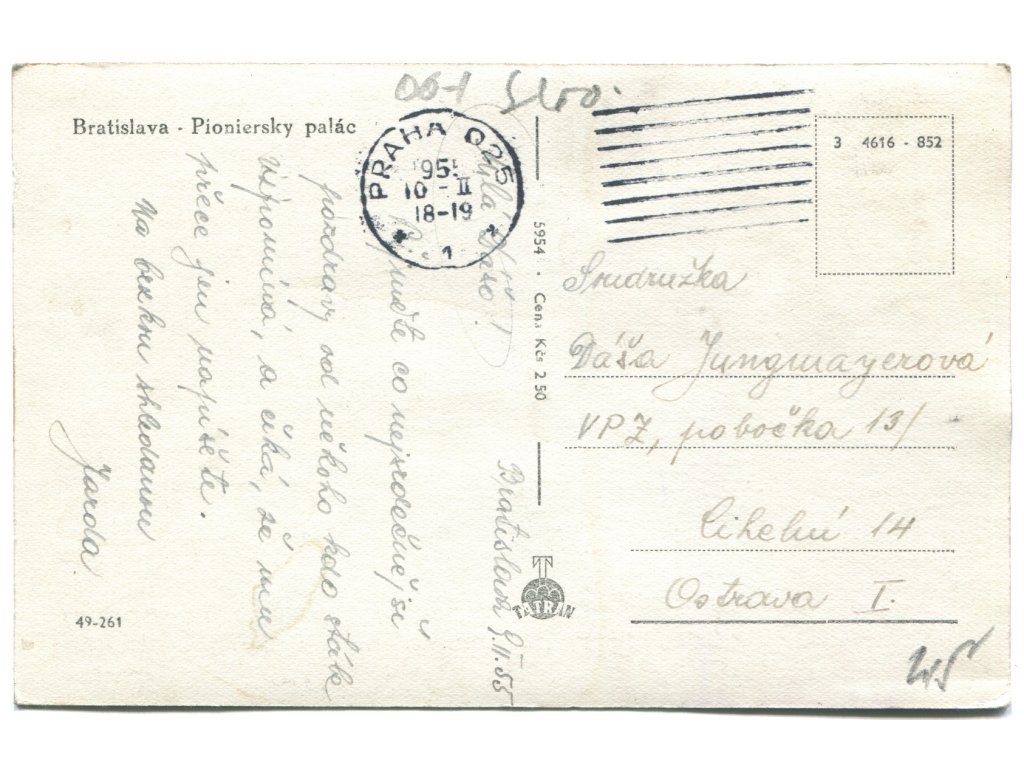 06-1 Slo.
Bratislava - Pioniersky palác
PRAHA 025
1955
10 - II
18-19
1
3 4616 - 852
Bratislava 9.II.55
Milá Dášo!
co nejsrdečnější
pozdravy od někoho kdo stále
vzpomíná, a čeká, že mu
přece jen napíšete.
Na brzkou shledanou
Jarda
49-261
5954 • Cena Kčs 2.50
TATRAN
Soudružka
Dáša Jungmayerová
VPZ, pobočka 13/
Cihelní 14
Ostrava I.